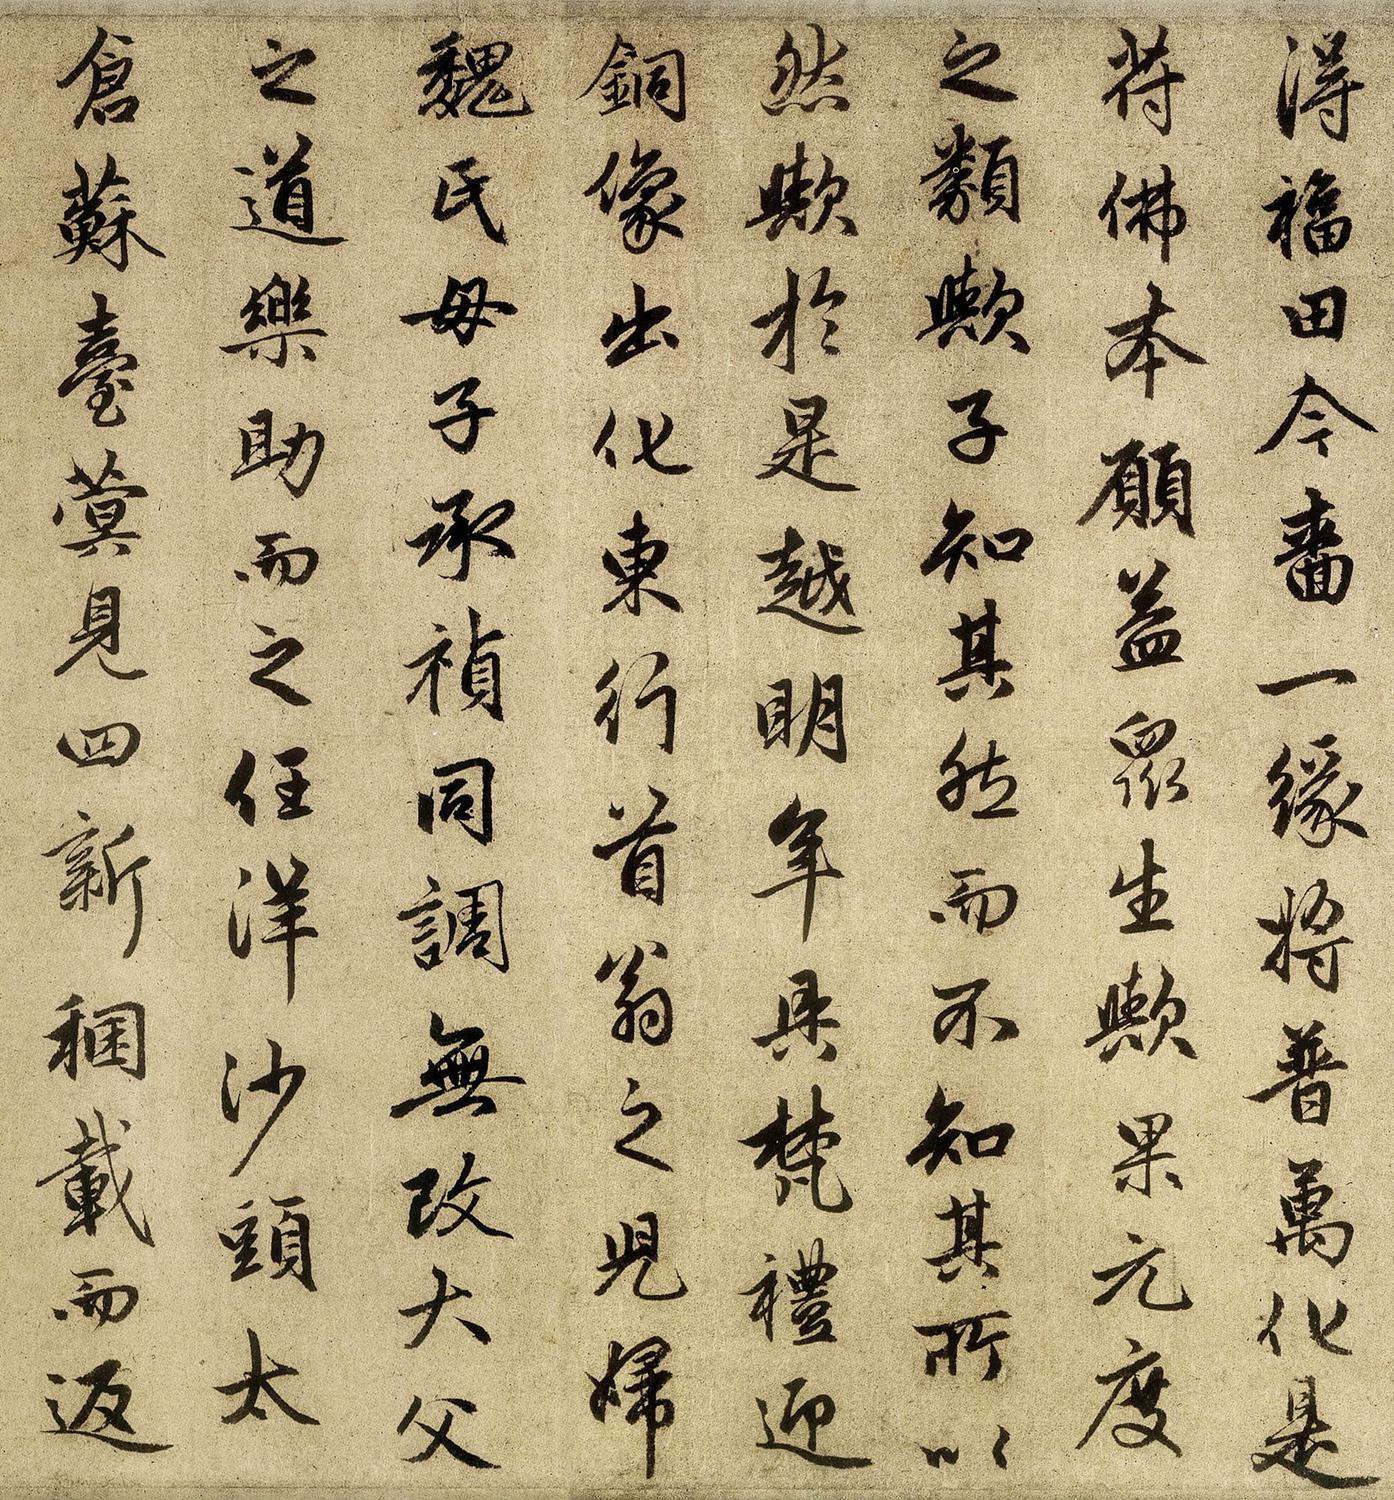 得福田今嗇一緣將普萬化是
符佛本願益眾生歟果元度
之類歟子知其然而不知其所以
然歟於是越明年具梵禮迎
銅像出化東行首翁之兒婦
魏氏母子承禎同調無改大父
之道樂助而之任洋沙頭太
倉蘇臺蓂見四新稛載而返